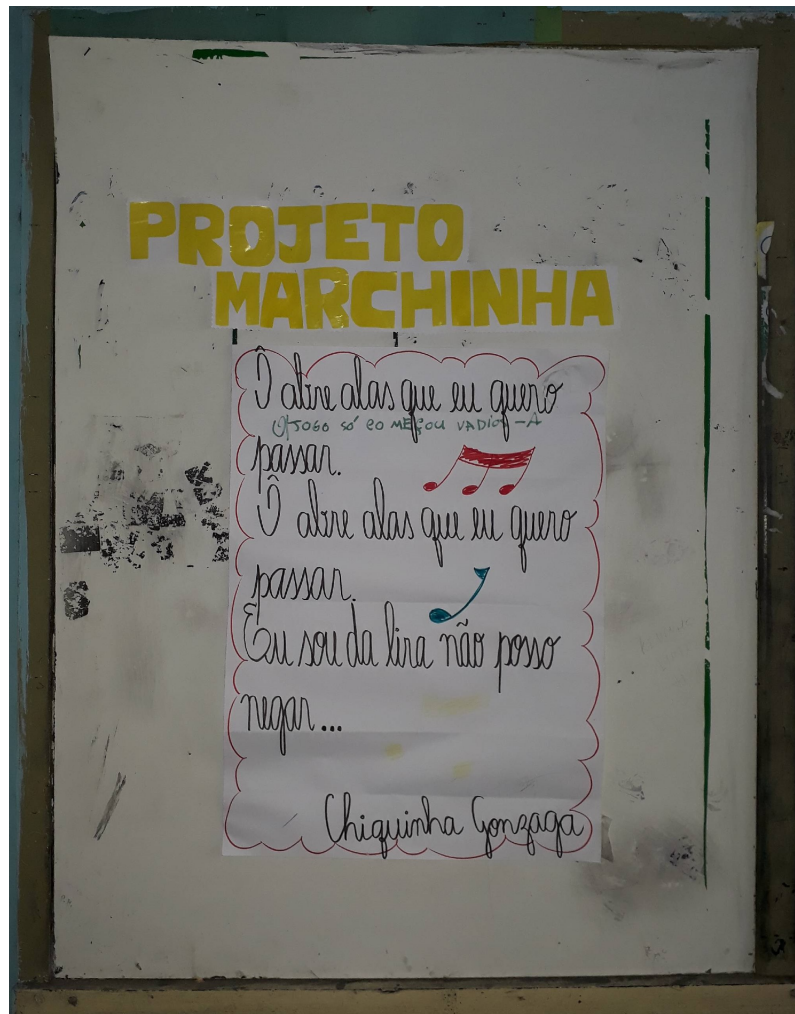 PROJETO
MARCHINHA
Ô abre alas que eu quero
O JOGO SÓ COMEÇOU VADIO -A
passar.
Ô abre alas que eu quero
passar.
Eu sou da lira não posso
negar...
Chiquinha Gonzaga